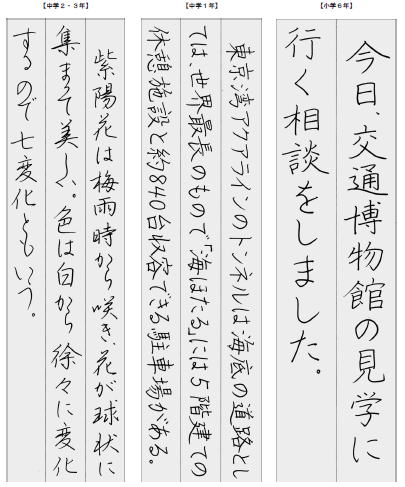 【小学6年】
今日、交通博物館の見学に
行く相談をしました。
【中学1年】
東京湾アクアラインのトンネルは海底の道路とし
ては、世界最長のもので「海ほたる」には5階建ての
休憩施設と約840台収容できる駐車場がある。
【中学2・3年】
紫陽花は梅雨時から咲き、花が球状に
集まって美しい。色は白から徐々に変化
するので七変化ともいう。